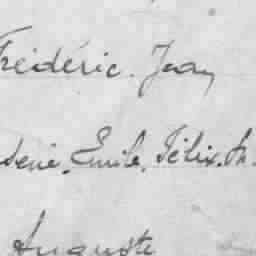 Frédéric. Jean
René. Emile. Félix. An
Auguste